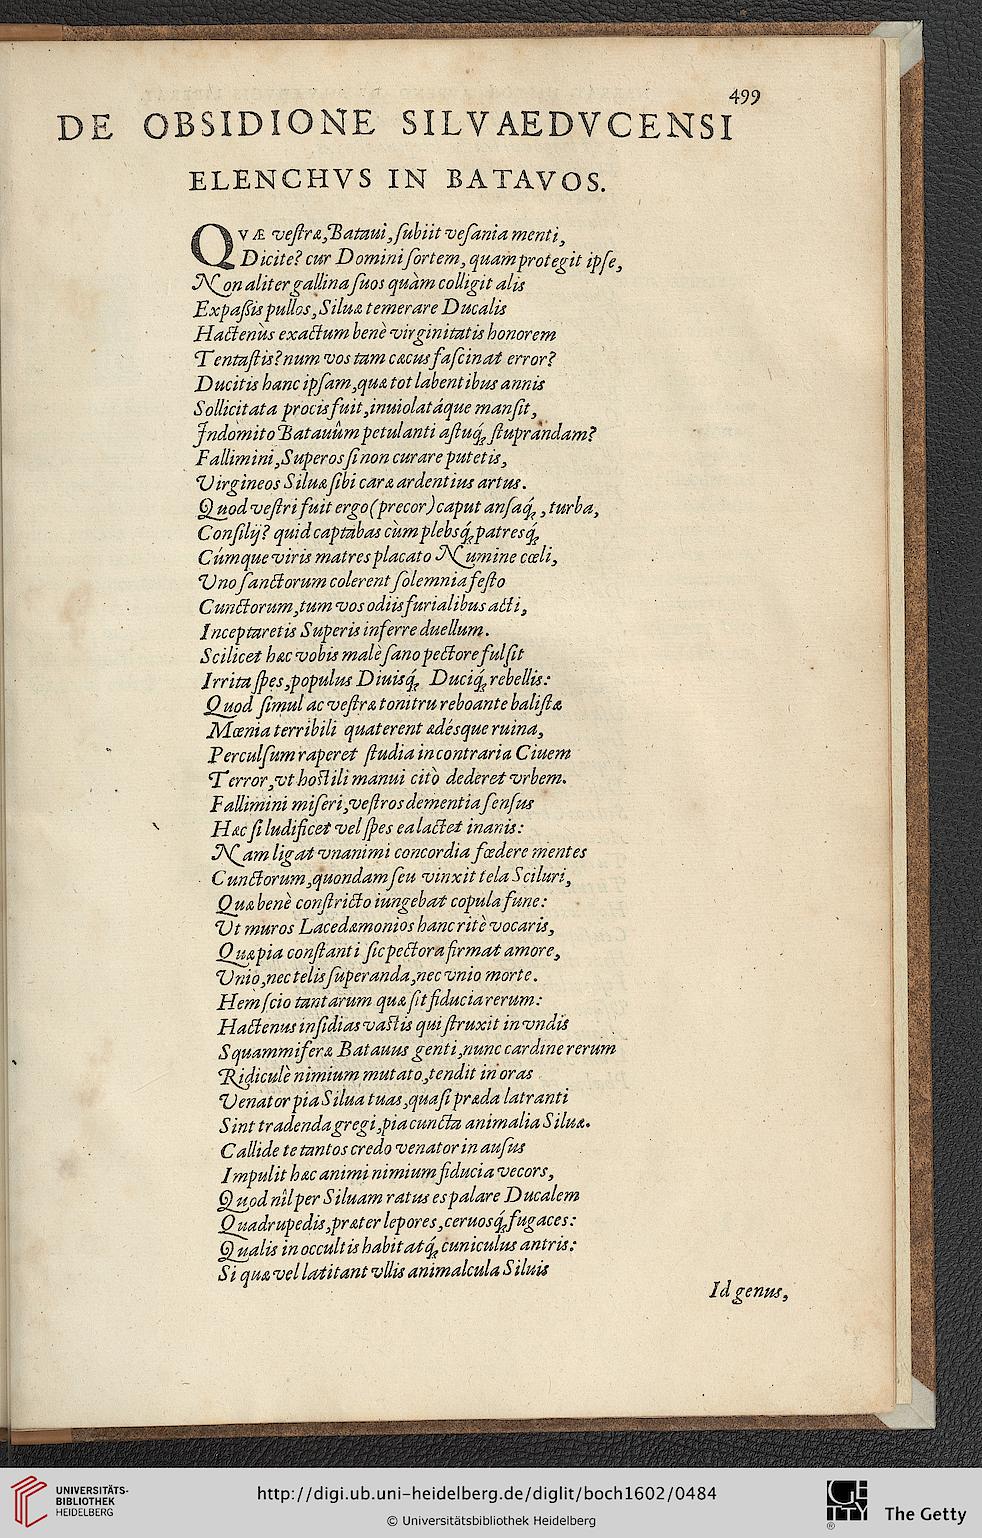 499
DE OBSIDIONE SILVAEDVCENSI
ELENCHVS IN BATAVOS.
QVÆ veſtræ, Bataui, ſubiit veſania menti,
Dicite? cur Domini ſortem, quam protegit ipſe,
Non aliter gallina ſuos quàm colligit alis
Expaſsis pullos, Siluæ temerare Ducalis
Hactenùs exactum benè virginitatis honorem
Tentaſtis? num vos tam cæcus faſcinat error?
Ducitis hanc ipſam, quæ tot labentibus annis
Sollicitata procis fuit, inuiolatáque manſit,
Indomito Batauûm petulanti aſtuq́; ſtuprandam?
Fallimini, Superos ſi non curare putetis,
Virgineos Siluæ ſibi caræ ardentius artus.
Quod veſtri fuit ergo (precor) caput anſaq́;, turba,
Conſilij? quid captabas cùm plebsq́; patresq́;
Cúmque viris matres placato Numine cœli,
Vno ſanctorum colerent ſolemnia feſto
Cunctorum, tum vos odiis furialibus acti,
Inceptaretis Superis inferre duellum.
Scilicet hæc vobis malè ſano pectore fulſit
Irrita ſpes, populus Diuisq́; Duciq́; rebellis:
Quod ſimul ac veſtræ tonitru reboante baliſtæ
Mœnia terribili quaterent ædésque ruina,
Perculſum raperet ſtudia in contraria Ciuem
Terror, vt hoſtili manui citò dederet vrbem.
Fallimini miſeri, veſtros dementia ſenſus
Hæc ſi ludificet vel ſpes ea lactet inanis:
Nam ligat vnanimi concordia fœdere mentes
Cunctorum, quondam ſeu vinxit tela Sciluri,
Quæ benè conſtricto iungebat copula fune:
Vt muros Lacedæmonios hanc ritè vocaris,
Quæ pia conſtanti ſic pectora firmat amore,
Vnio, nec telis ſuperanda, nec vnio morte.
Hem ſcio tantarum quæ ſit fiducia rerum:
Hactenus inſidias vaſtis qui ſtruxit in vndis
Squammiferæ Batauus genti, nunc cardine rerum
Ridiculè nimium mutato, tendit in oras
Venator pia Silua tuas, quaſi præda latranti
Sint tradenda gregi, pia cuncta animalia Siluæ.
Callide te tantos credo venator in auſus
Impulit hæc animi nimium fiducia vecors,
Quod nîl per Siluam ratus es palare Ducalem
Quadrupedis, præter lepores, ceruosq́; fugaces:
Qualis in occultis habitatq́; cuniculus antris:
Si quæ vel latitant vllis animalcula Siluis
Id genus,
UNIVERSITÄTS-
BIBLIOTHEK
HEIDELBERG
http://digi.ub.uni-heidelberg.de/diglit/boch1602/0484
© Universitätsbibliothek Heidelberg
The Getty